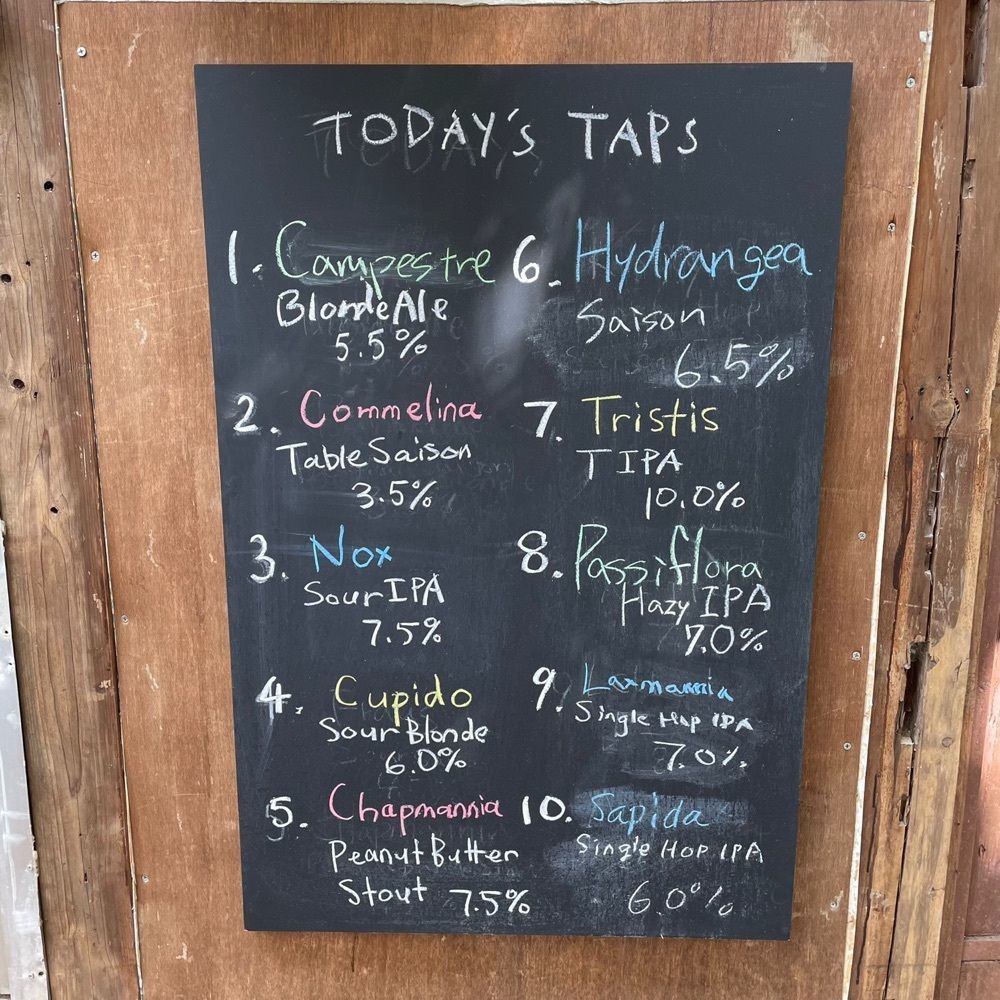 TODAY'S TAPS
1. Campestre
Blonde Ale
5.5%
2. Commelina
Table Saison
3.5%
3. Nox
Sour IPA
7.5%
4. Cupido
Sour Blonde
6.0%
5. Chapmannia
Peanut Butter
Stout 7.5%
6. Hydrangea
Saison
6.5%
7. Tristis
TIPA
10.0%
8. Passiflora
Hazy IPA
7.0%
9. Laxmannia
Single Hop IPA
7.0%
10. Sapida
Single Hop IPA
6.0%